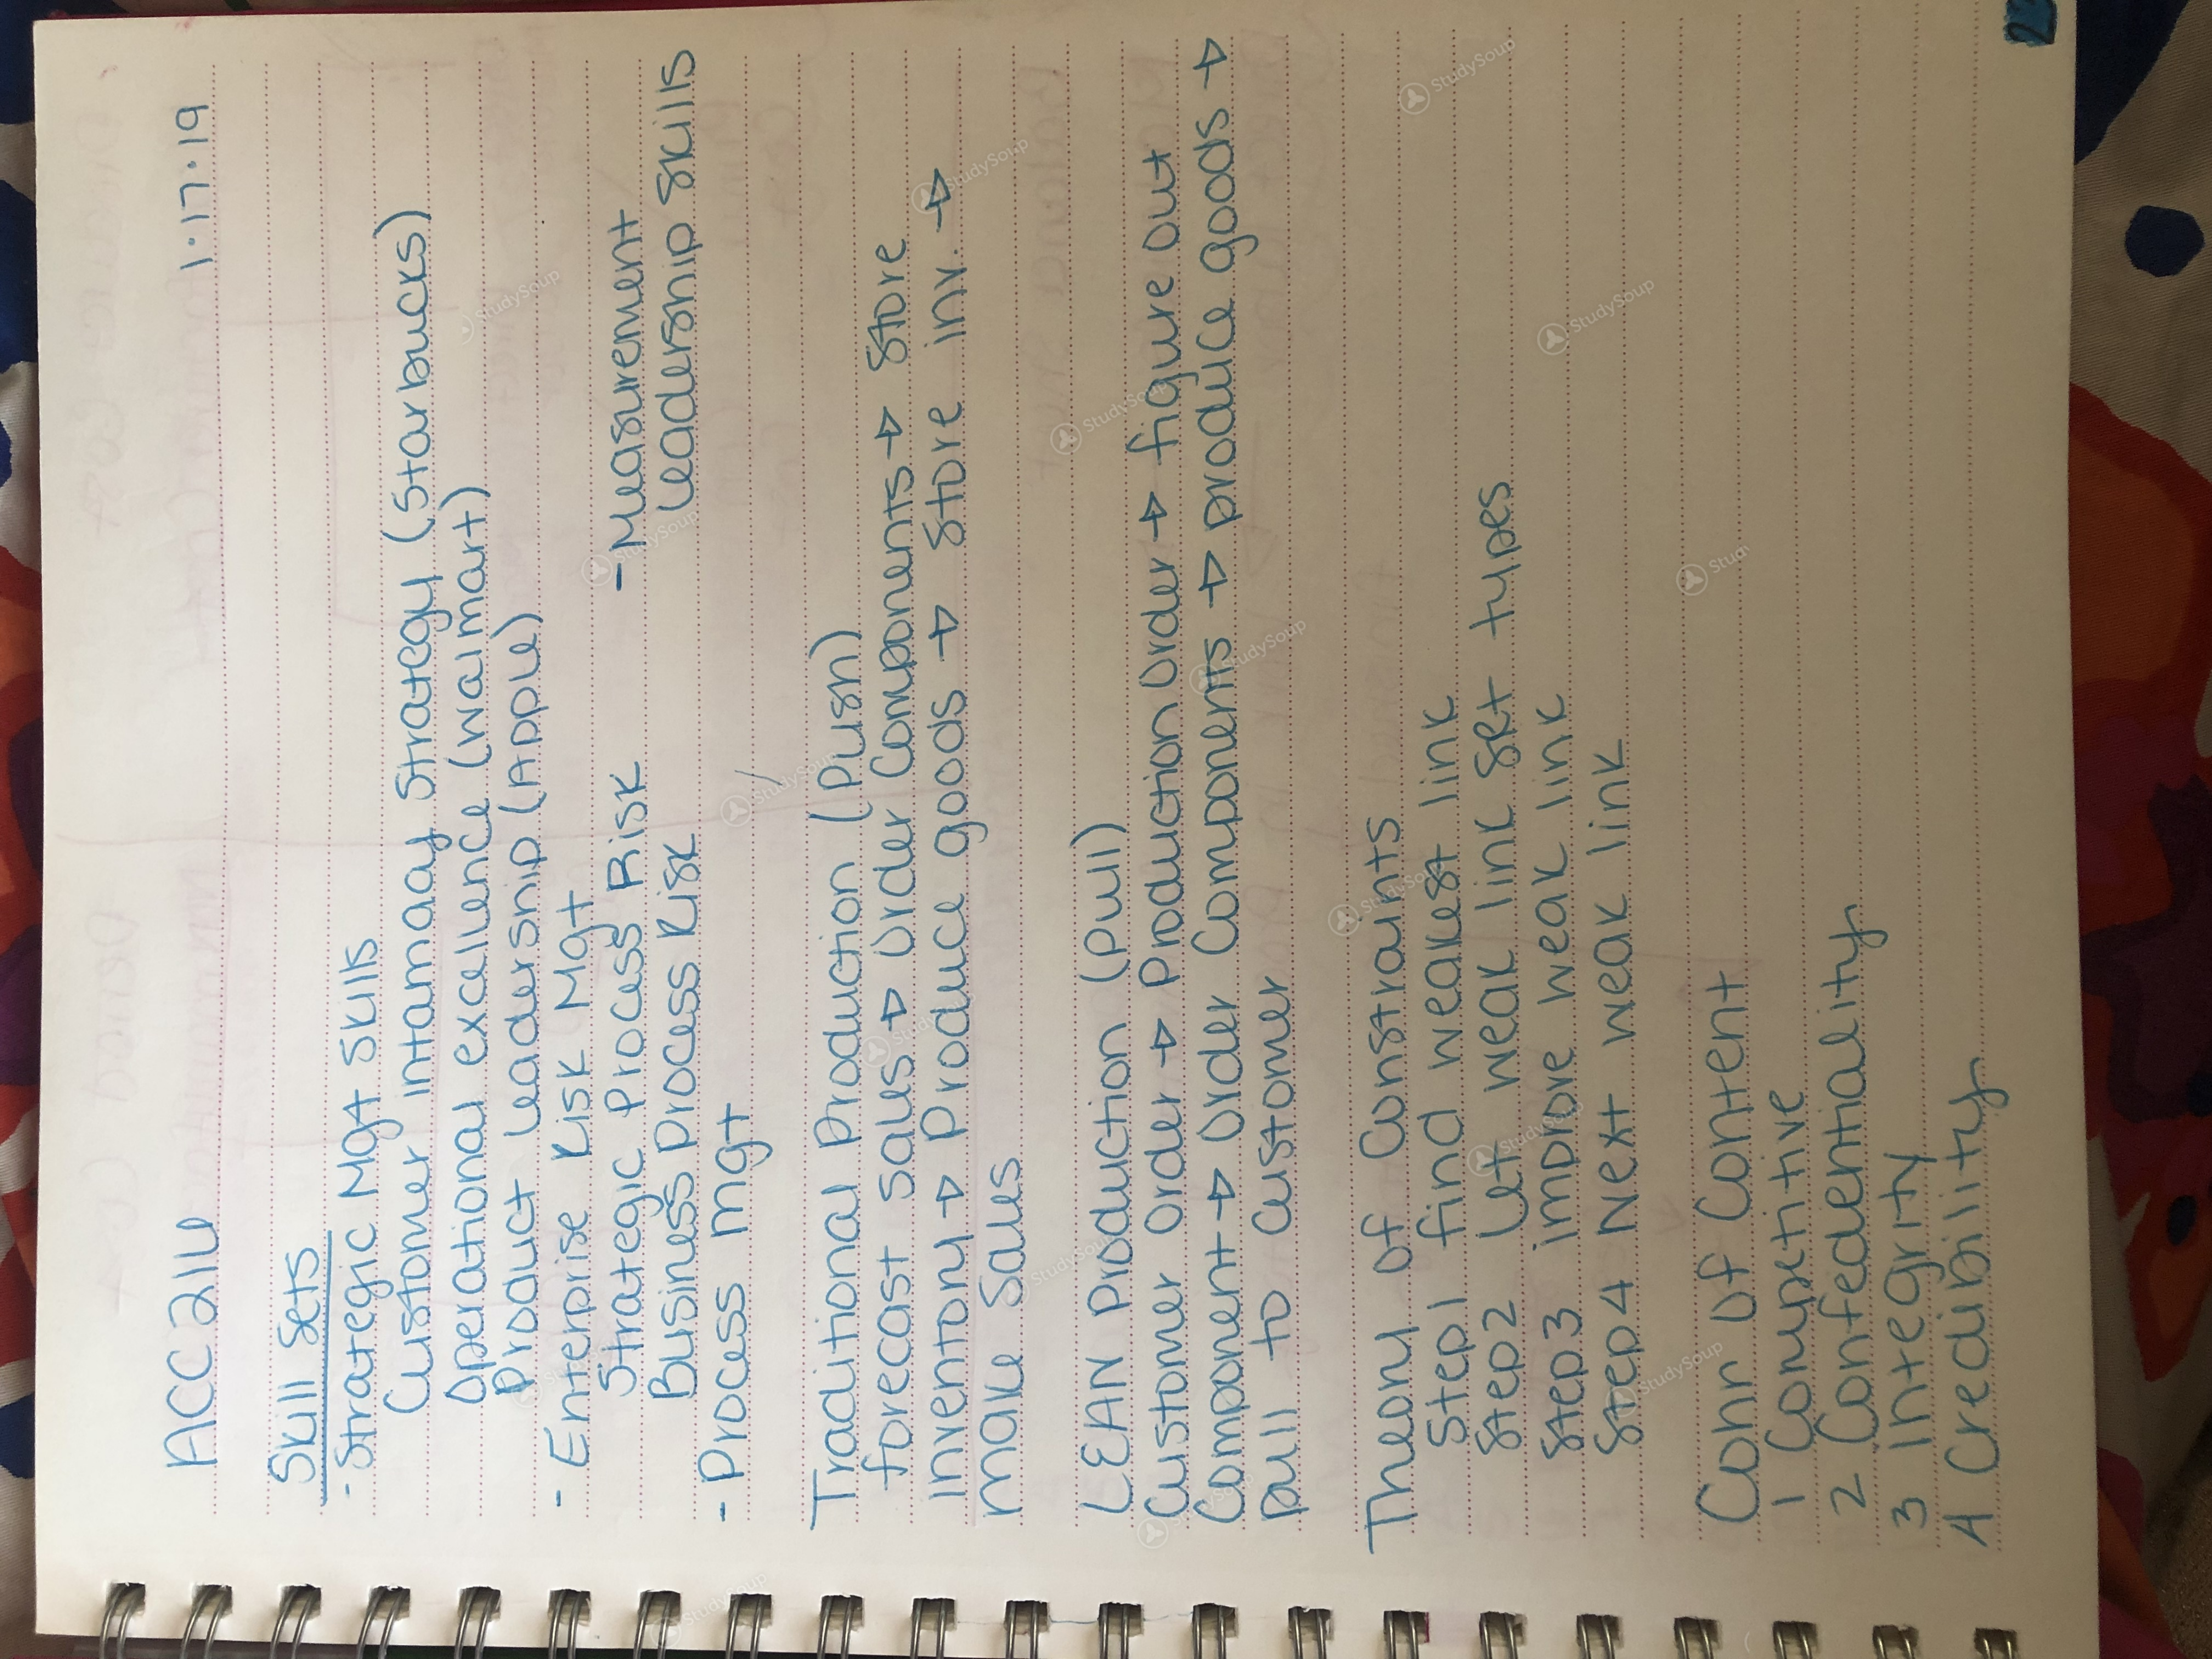 ACC211W 1.17.19
Skill Sets
- Strategic Mgt Skills
Customer intamaay Strategy (Starbucks)
Operational excellence (walmart)
Product Leadership (Apple)
- Enterprise Risk Mgt
Strategic Process Risk - Measurement
Business Process Risk Leadership Skills
- Process Mgt
Traditional Production (Push)
forecast sales → Order Components → Store
Inventory → Produce goods → Store inv. →
Make Sales
LEAN Production (Pull)
Customer Order → Production Order → figure out
Component → Order Components → produce goods →
pull to customer
Theory of Constraints
Step1 find weakest link
Step2 Let weak link set types
Step3 improve weak link
Step4 Next weak link
Conr of Content
1 Competitive
2 Confedentiality
3 Integrity
4 Credibility
StudySoup